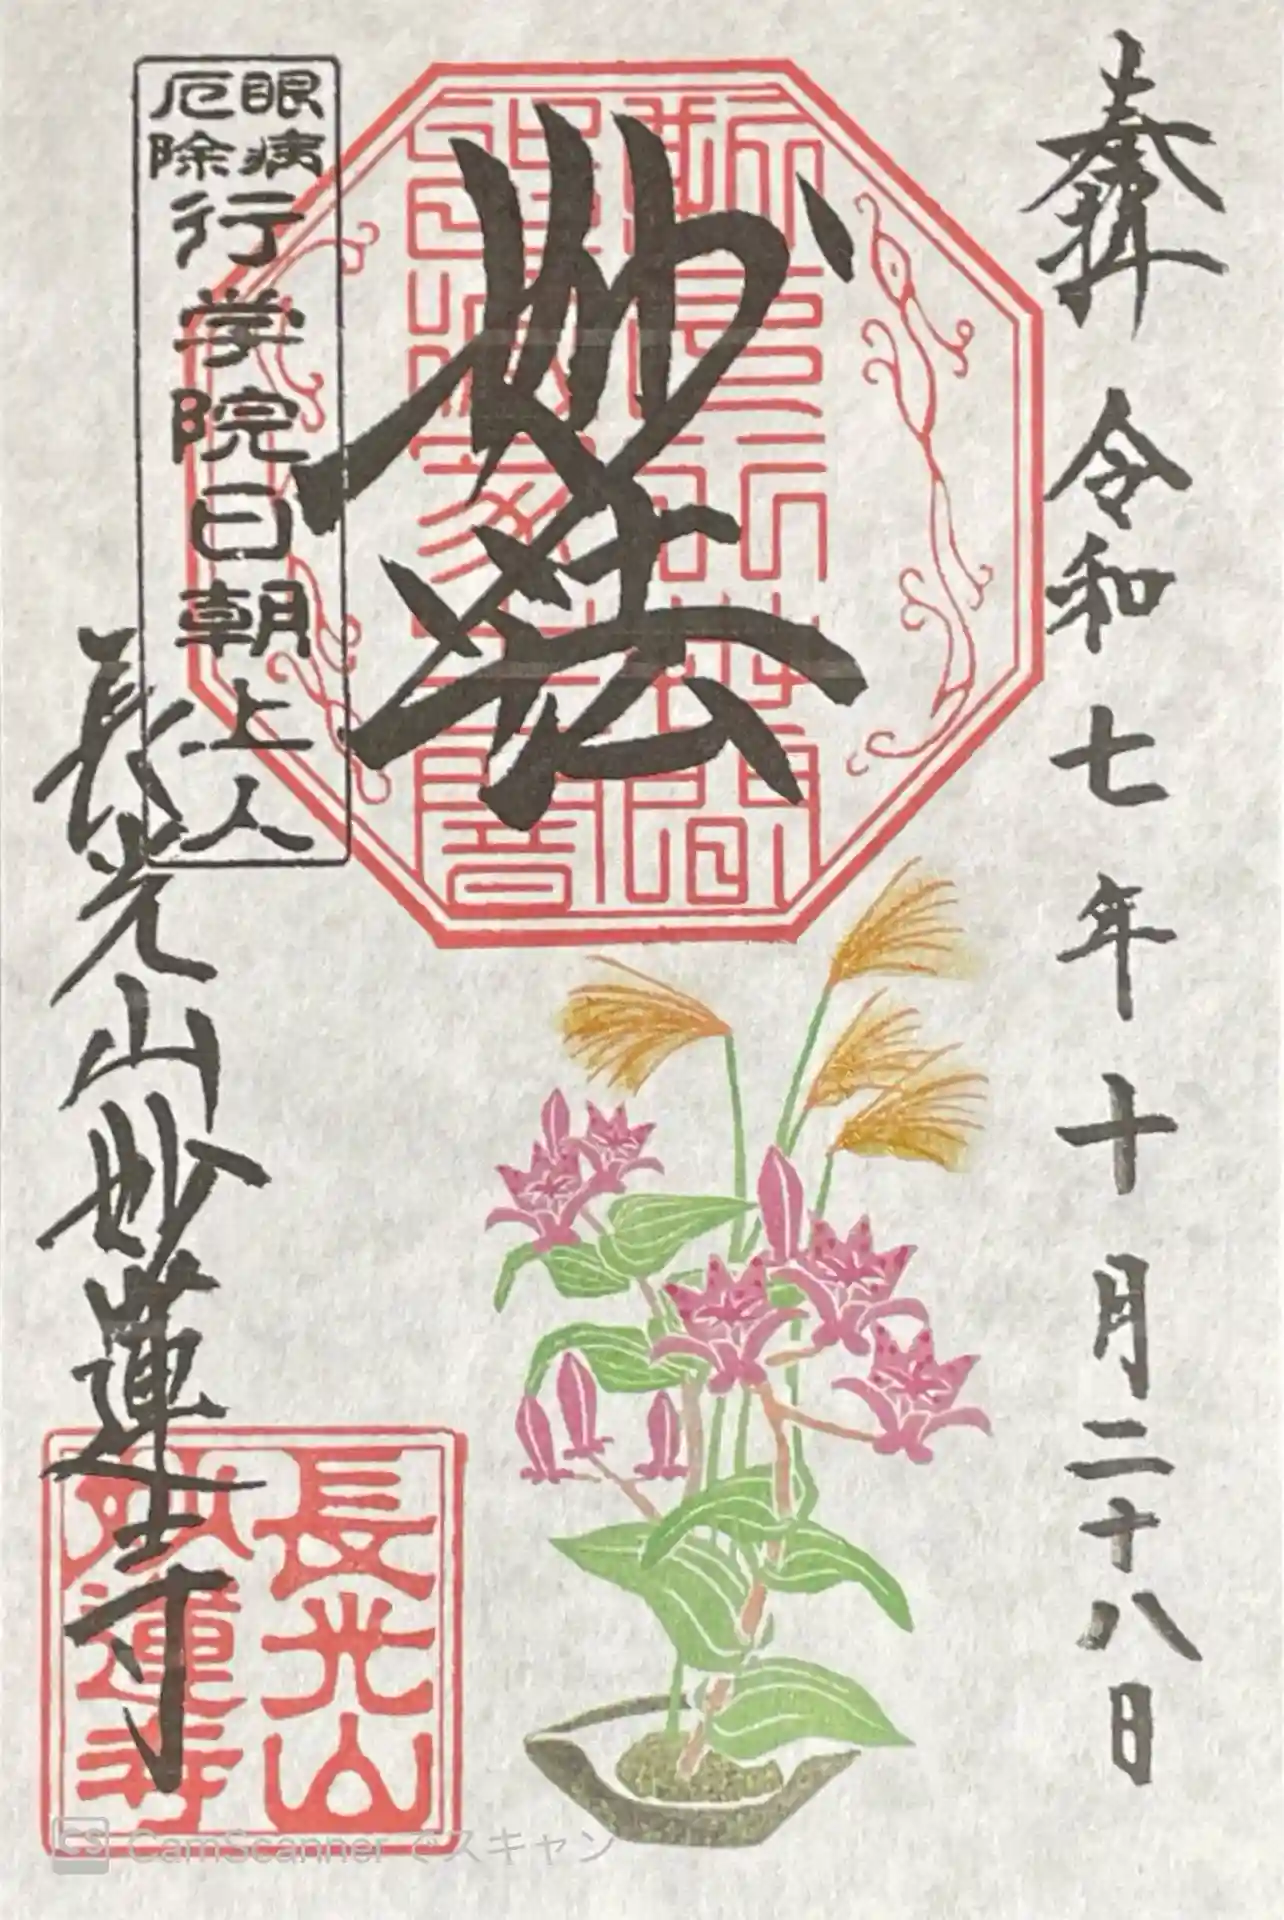 奉拝
令和七年十月二十八日
妙法
眼病
厄除
行学院日朝上人
長光山妙蓮寺
長光山
妙蓮寺
CS CamScanner でスキャン